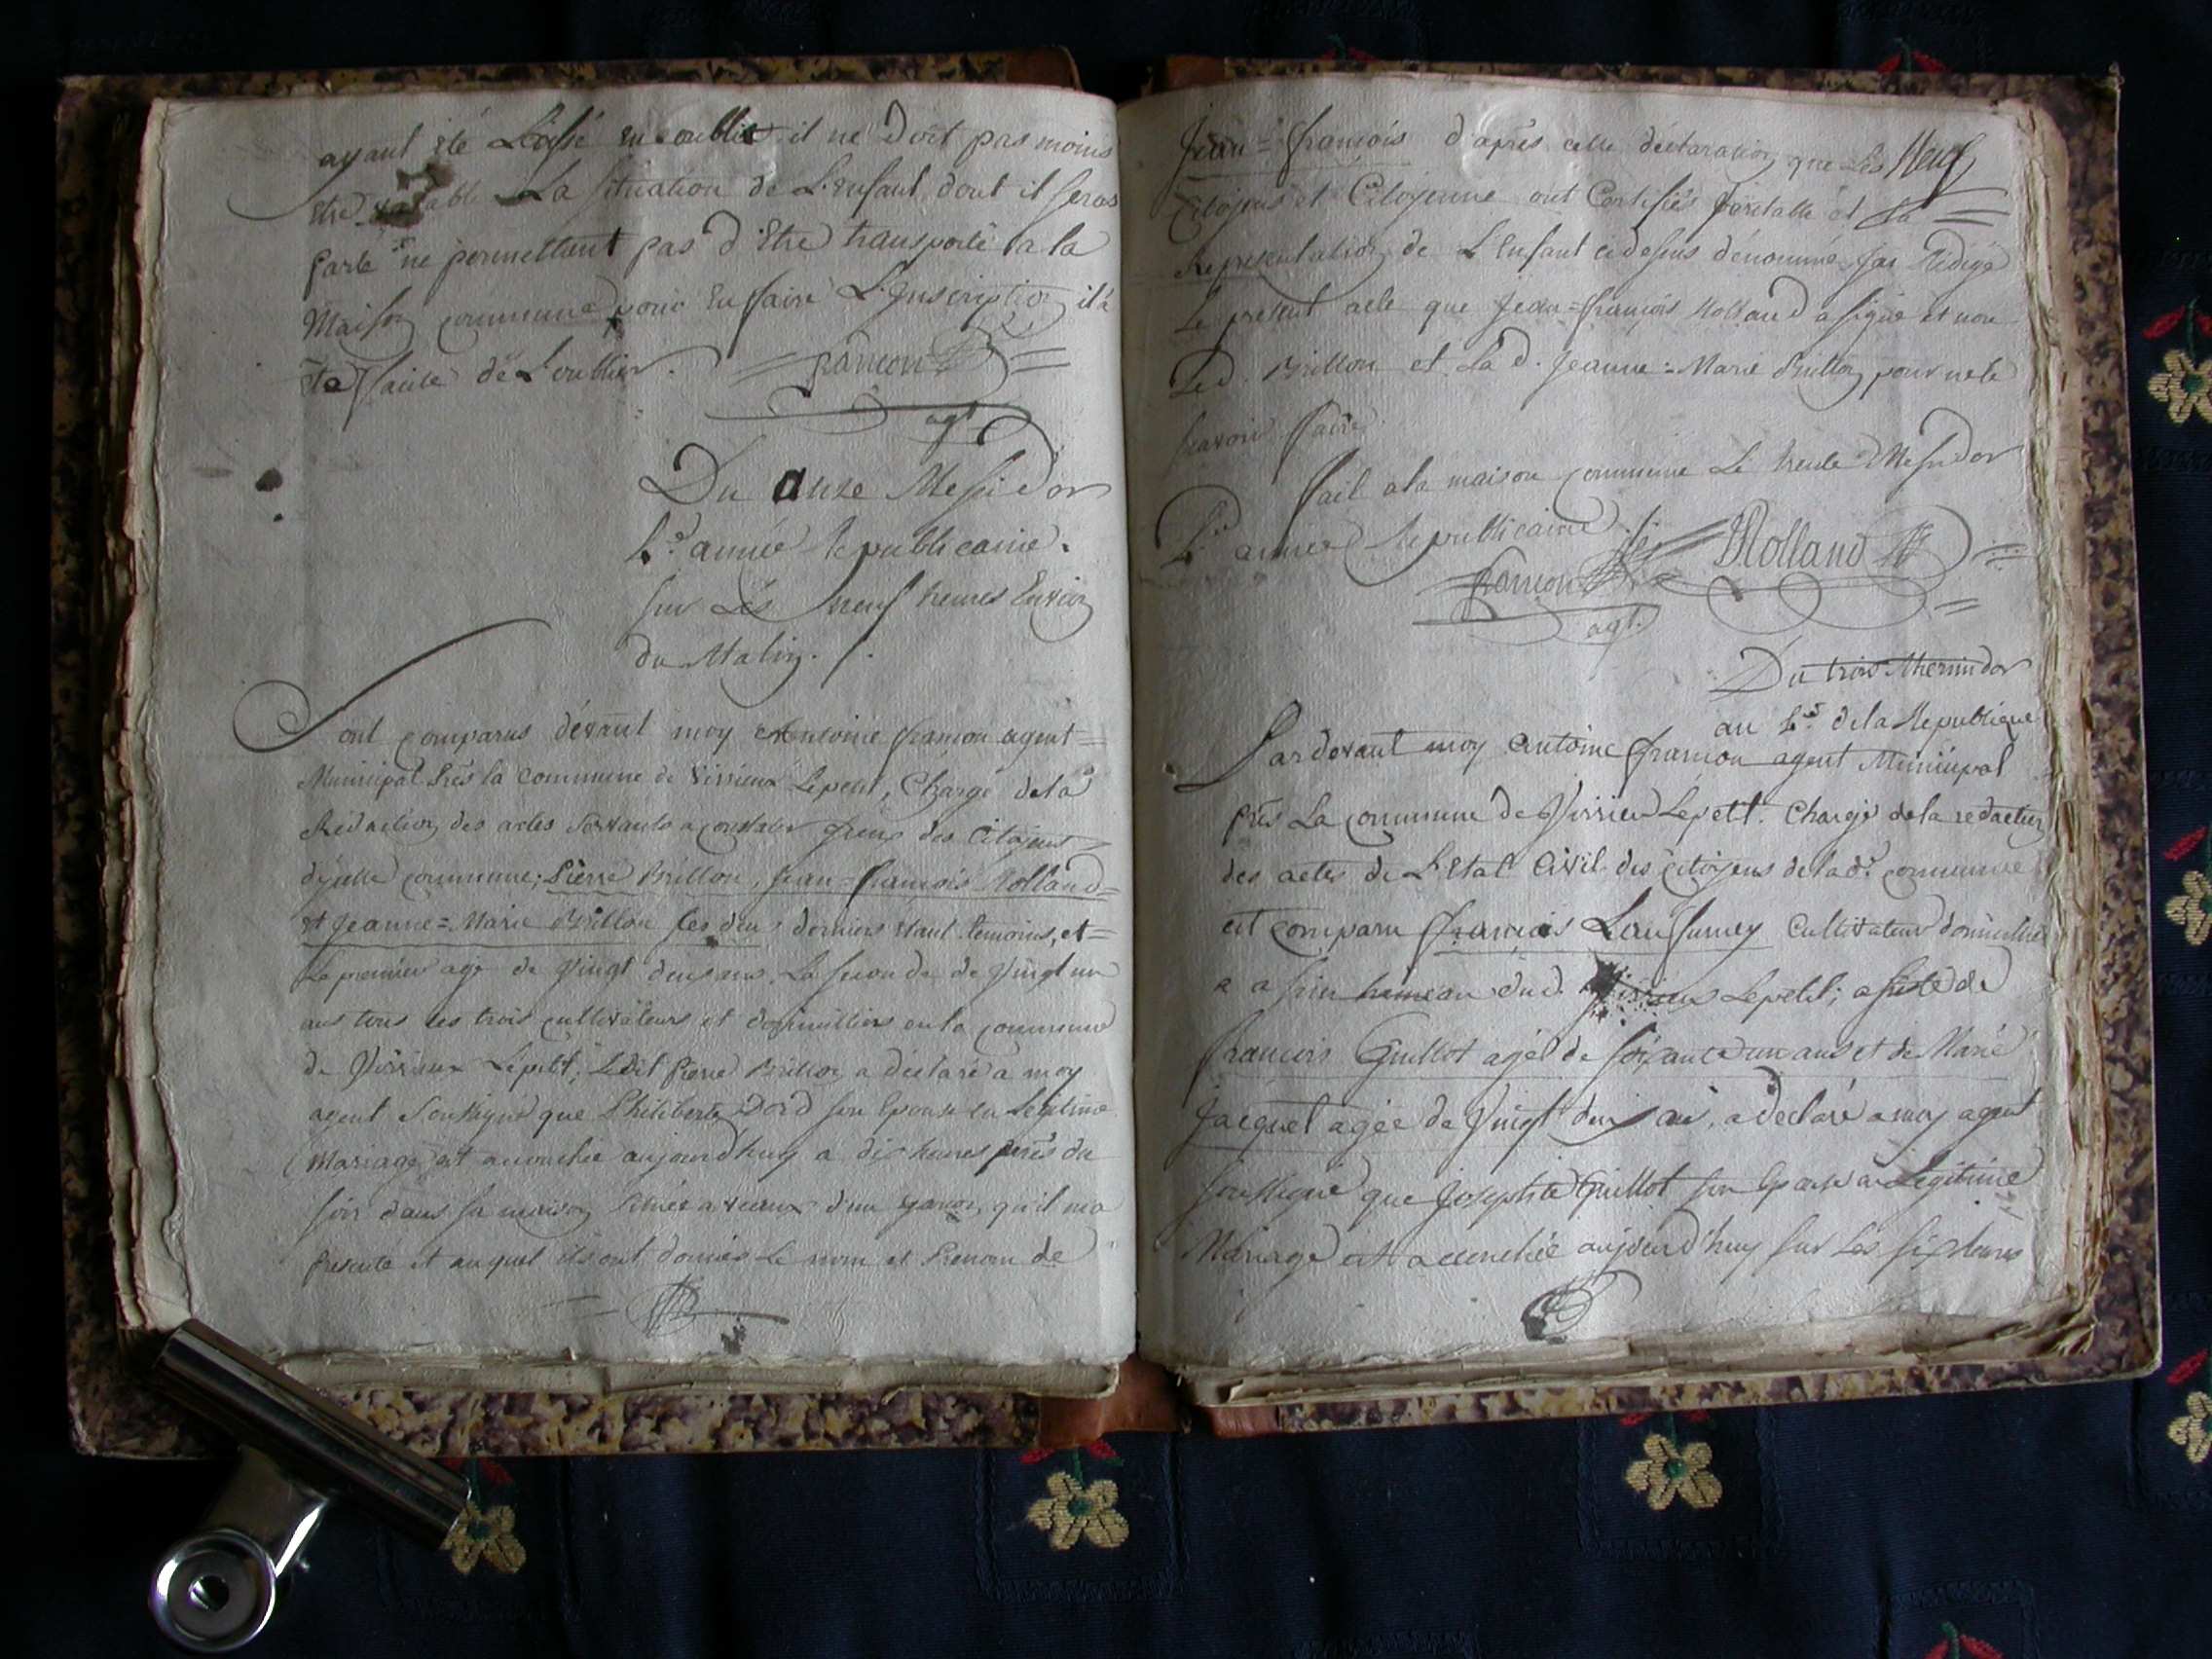 ayant été Laissé en oublie il ne Doit pas moins
être La situation de L'enfant, dont il seras
parlé ne permettant pas d'Etre transporté a la
Maison commune pour En faire L'Inscription il à
été facile de L'oublier.
francon
agt
Du onze Messidor
L.e année Republicaine.
sur Lés neuf heures Environ
du Matin.
Sont comparus dévant moy Antoine francon agent
Municipal Près la commune de Virrieux Lepetit, Chargé dela
Rédaction des actes servants a constater des Citojens
dycelle commune; Pierre Brillon, Jean=françois Rolland
et Jeanne=Marie Brillon ses deux derniers étant temoins, et
Le premier agé de Vingt deux ans, La seconde de Vingt un
ans tous les trois cultivateurs et domicilliés en la commune
de Virrieux Lepetit; Ledit Pierre Brillon a déclaré a moy
agent Soussigné que Philiberte Dord son Epouse en Legitime
Mariage est accouchée aujourd'huy a dix heures du
soir dans sa maison Située a d'un garcon, qu'il m'a
Presenté et auquel ils ont donnés Le nom et Prenom de
Jean=françois d'après cette déclaration que Les
Citojens et Citoyenne ont Certifiés et La
Representation de L'Enfant cidessus dénommé Jai Rédigé
Le présent acte que Jean=françois Rolland a signé et non
Led. Brillon et La d. Jeanne=Marie Brillon pour ne le
savoir faire.
fait a la maison commune Le trente Messidor
L.e année Republicaine
francon Rolland
agt.
Du trois Thermidor
an L.e dela Republique
Pardevant moy Antoine francon agent Municipal
près La commune de Virrieu Lepetit. Chargé dela redaction
des actes de L'Etat Civil des Citojens de lad.e commune
est comparu françois Cultivateur domicillié
a hameau dud. Virrieux Lepetit; assisté de
francois Guillot agé de soixante un ans et de Marie
Jacquet agée de Vingt deux ans, a déclaré a moy agent
soussigné que Josephte Guillot son Epouse en Legitime
Mariage est accouchée aujourd'huy sur Les six heures